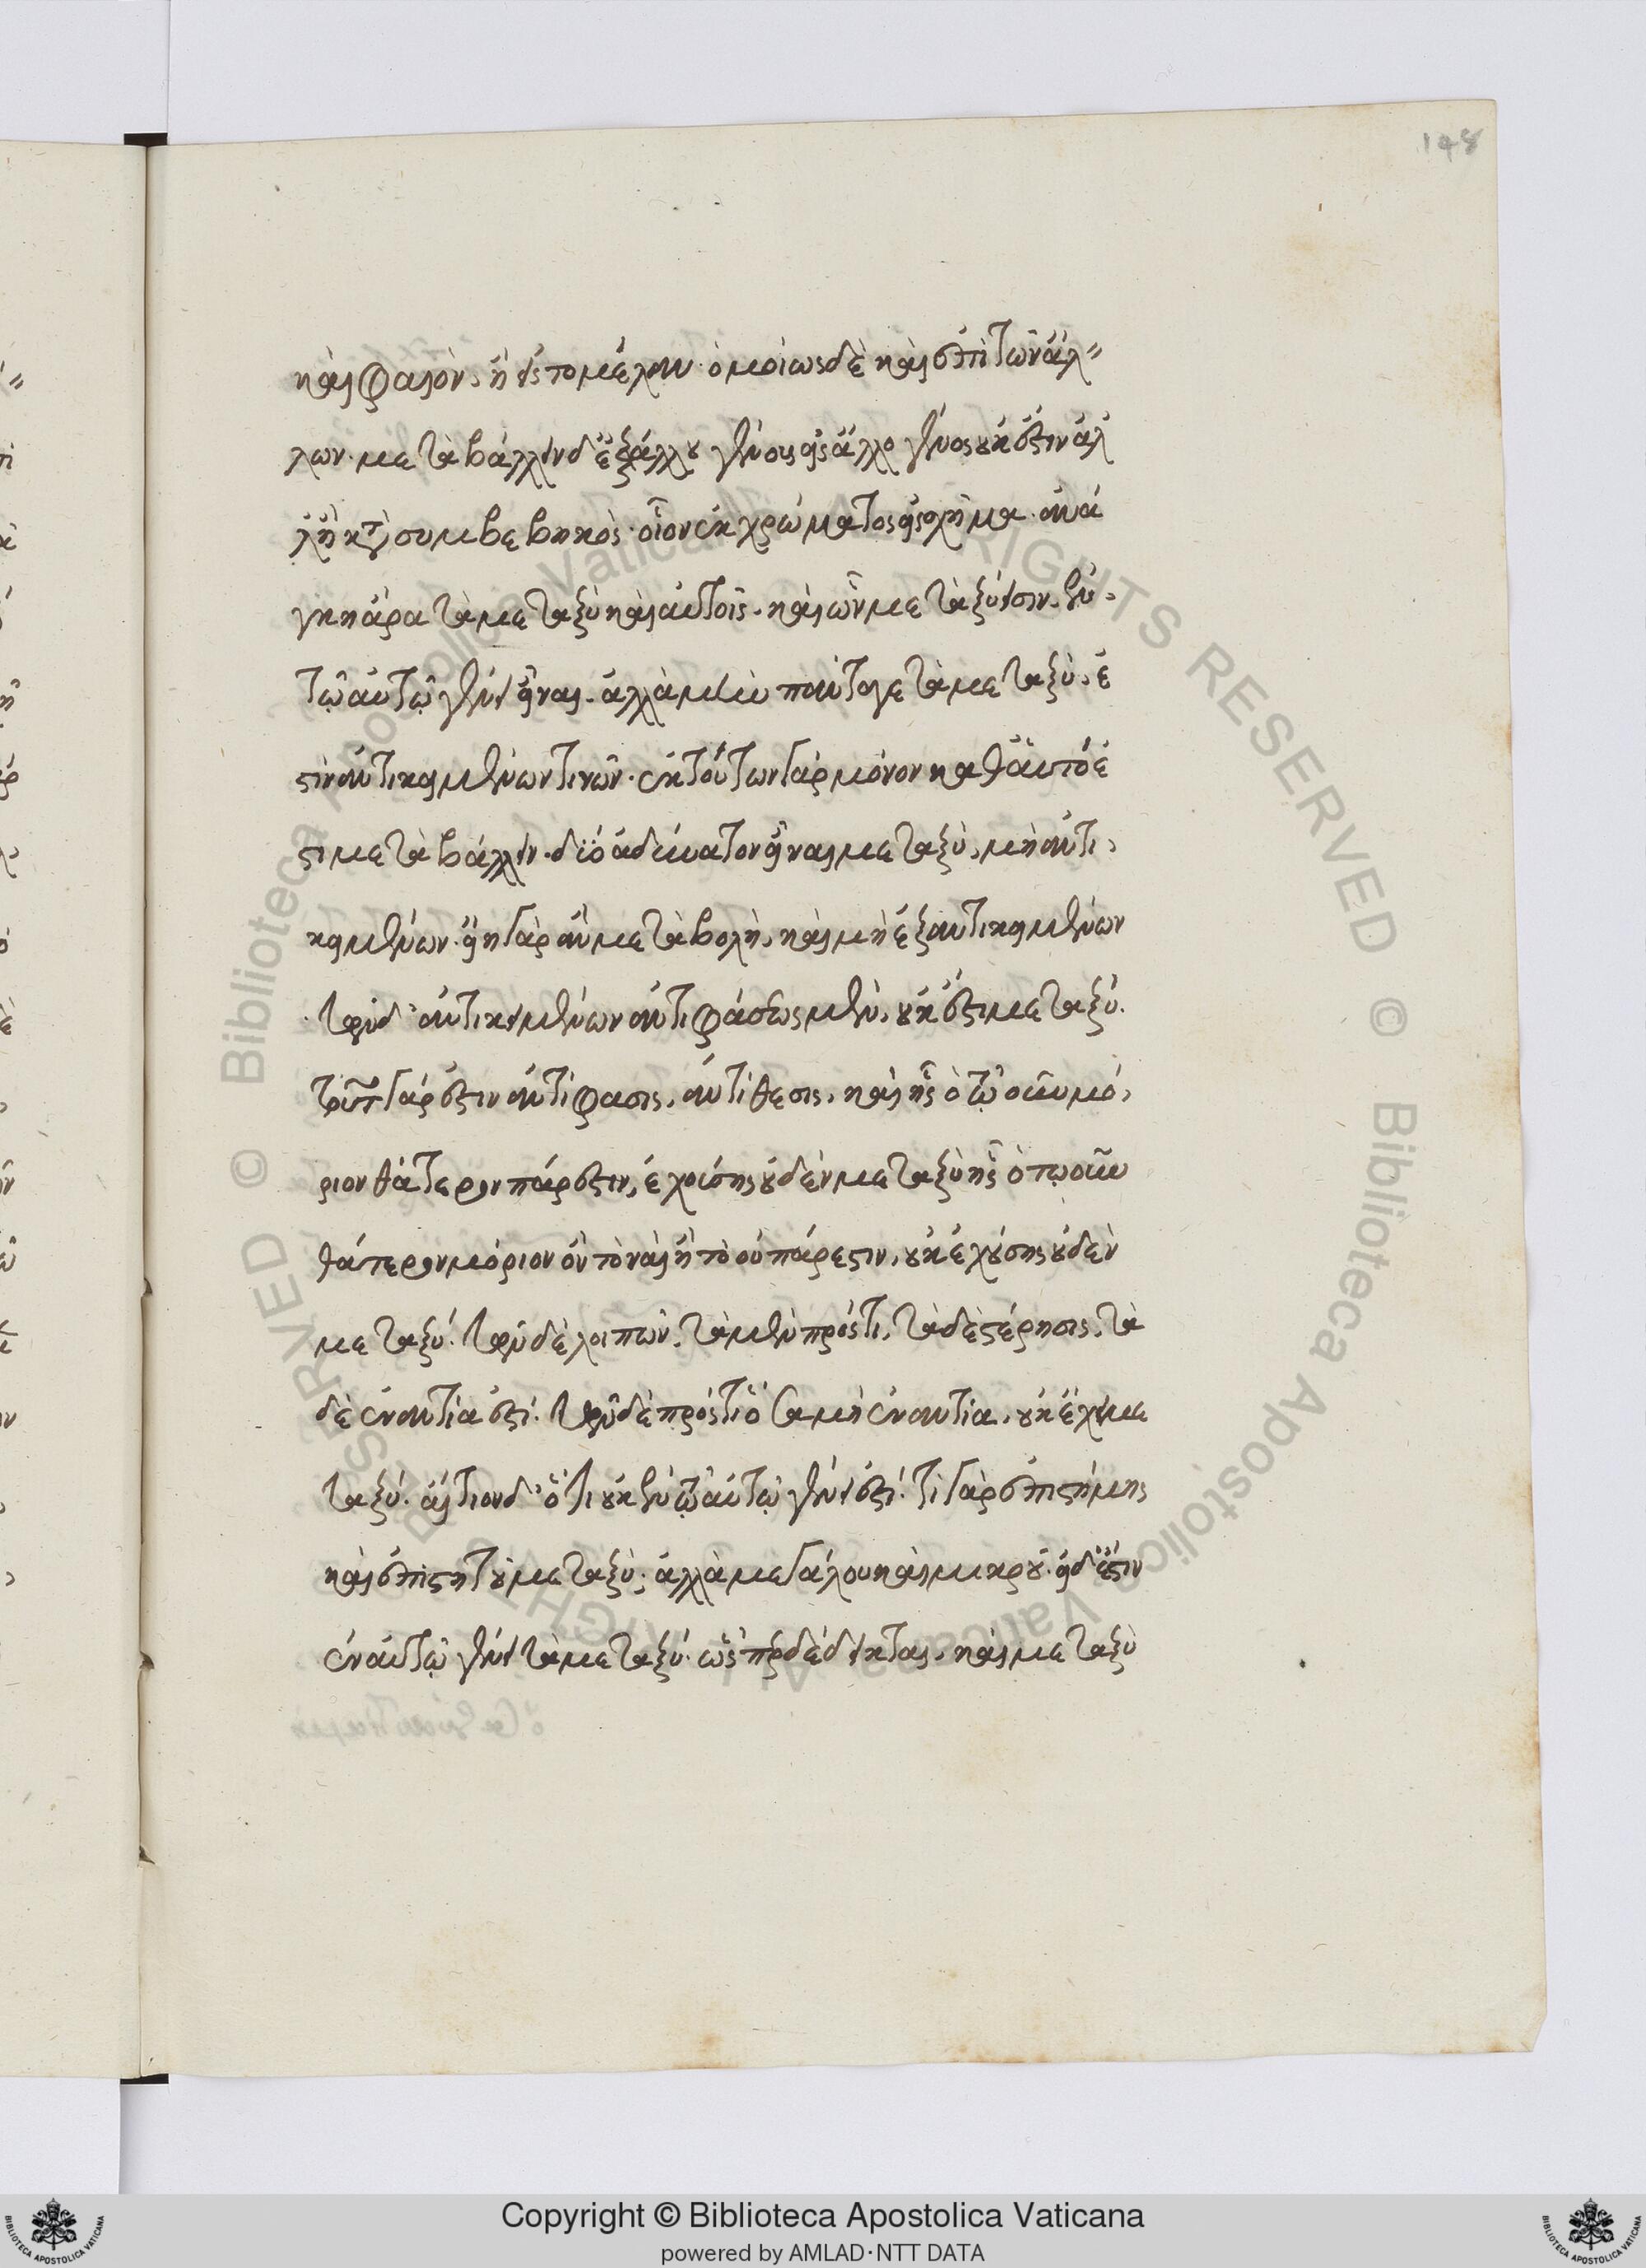 148
καὶ φαιὸν, ἢ εἰς τὸ μέλαν· ὁμοίως δὲ καὶ ἐπὶ τῶν ἄλ=
λων· μεταβάλλειν δ' ἐξ ἄλλου γένους εἰς ἄλλο γένος οὐκ ἔστιν ἀλ
λ' ἢ κατὰ συμβεβηκὸς· οἷον ἐκ χρώματος εἰς σχῆμα· ἀνά
γκη ἄρα τὰ μεταξὺ καὶ αὐτοῖς, καὶ ὧν μεταξύ εἰσιν, ἐν
τῷ αὐτῷ γένει εἶναι. ἀλλὰ μὴν πάντα γε τὰ μεταξὺ, ἐ
στὶν ἀντικειμένων τινῶν· ἐκ τούτων γὰρ μόνον καθ' αὑτὸ ἔ
στι μεταβάλλειν· διὸ ἀδύνατον εἶναι μεταξὺ, μὴ ἀντι,
κειμένων· εἴη γὰρ ἂν μεταβολὴ, καὶ μὴ ἐξ ἀντικειμένων
τῶν δ' ἀντικειμένων ἀντιφάσεως μὲν, οὐκ ἔστι μεταξύ.
τοῦτο γάρ ἐστιν ἀντίφασις, ἀντίθεσις, καὶ ἧς ὁτῳοῦν μό,
ριον θάτερον πάρεστιν, ἐχούσης οὐδὲν μεταξὺ ἧς ὁτῳοῦν
θάτερον μόριον ὂν τὸ ναὶ ἢ τὸ οὐ πάρεστιν, οὐκ ἐχούσης οὐδὲν
μεταξύ. τῶν δὲ λοιπῶν, τὰ μὲν πρός τι, τὰ δὲ στέρησις, τὰ
δὲ ἐναντία ἐστί. τῶν δὲ πρός τι ὅσα μὴ ἐναντία, οὐκ ἔχει με
ταξύ. αἴτιον δ' ὅτι οὐκ ἐν τῷ αὐτῷ γένει ἐστί. τί γὰρ ἐπιστήμης
καὶ ἐπιστητοῦ μεταξὺ; ἀλλὰ μεγάλου καὶ μικροῦ. εἰ δ' ἔστιν
ἐν αὐτῷ γένει τὰ μεταξύ. ὥσπερ δέδεικται, καὶ μεταξὺ